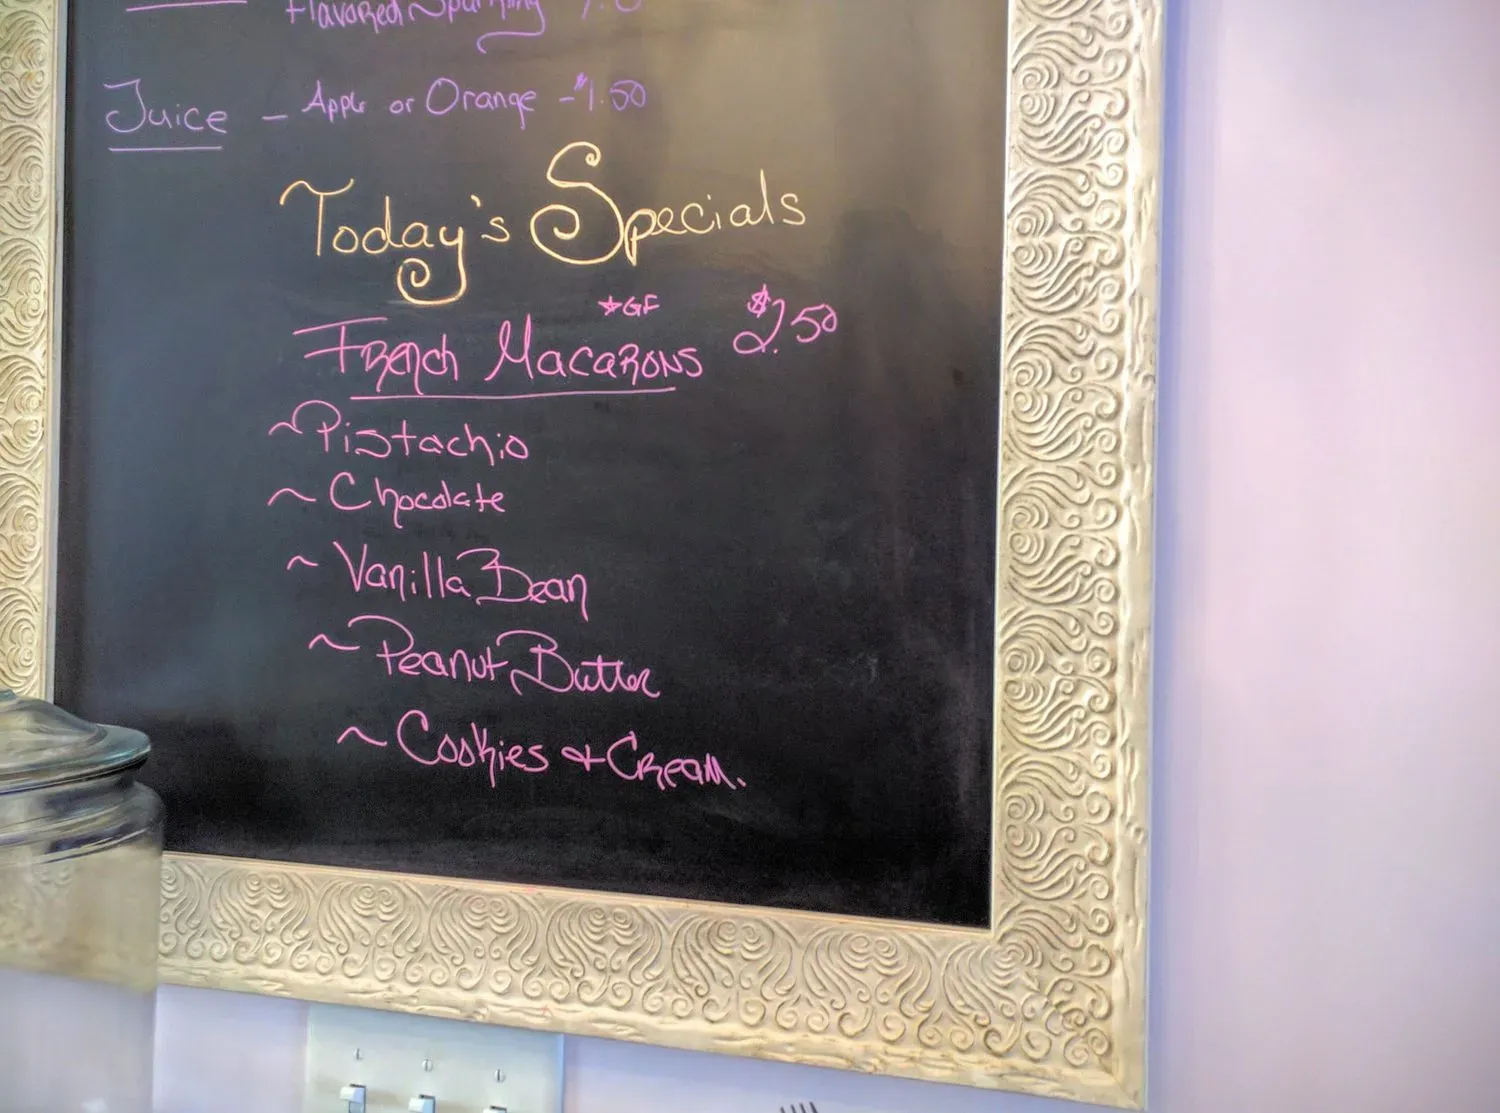 Flavored Sparkling
Juice - Apple or Orange - $1.50
Today's Specials
*GF
French Macarons $2.50
~Pistachio
~ Chocolate
~ Vanilla Bean
~ Peanut Butter
~ Cookies & Cream.